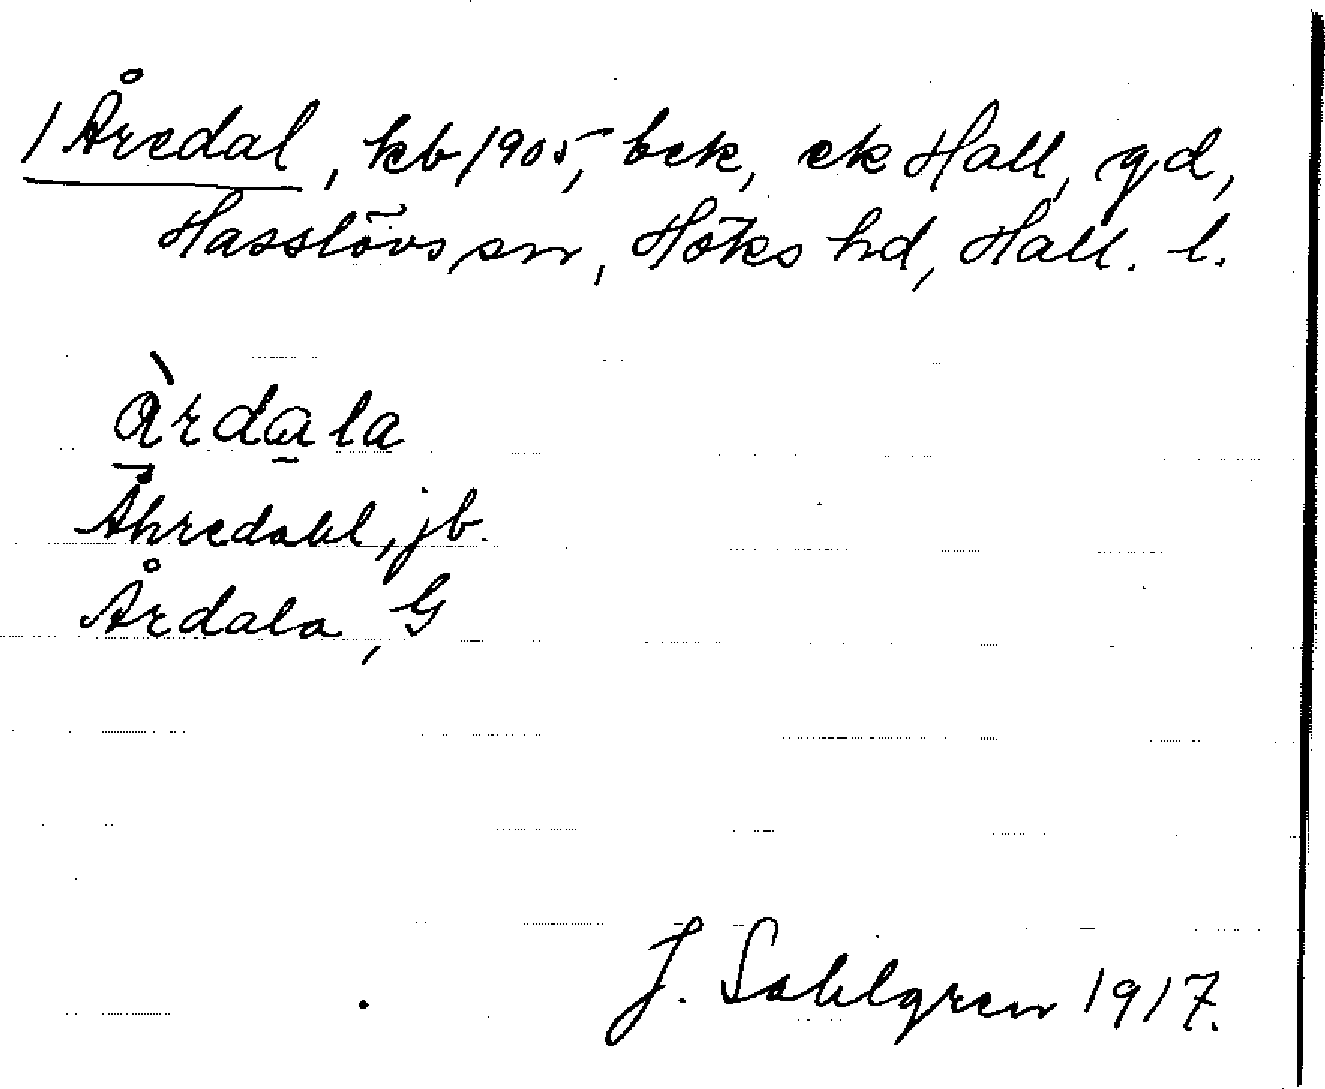 1 Åredal, kb 1905, bek, ek Hall, gd,
Hasslövs sn, Höks hd, Hall. l.
àrdala
Åhredahl, jb.
Årdala, G
J. Sahlgren 1917.